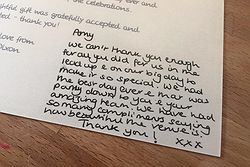 the celebrations.
gift was gratefully accepted and
for
love from
Pony
we can't thank you enough
for all you did for us on the
lead up & on our big day to
make it so special. we had
the best day ever & that was
down to you & your
amazing team. we have had
so many compliments saying
how beautiful the venue is.
Thank you! xxx